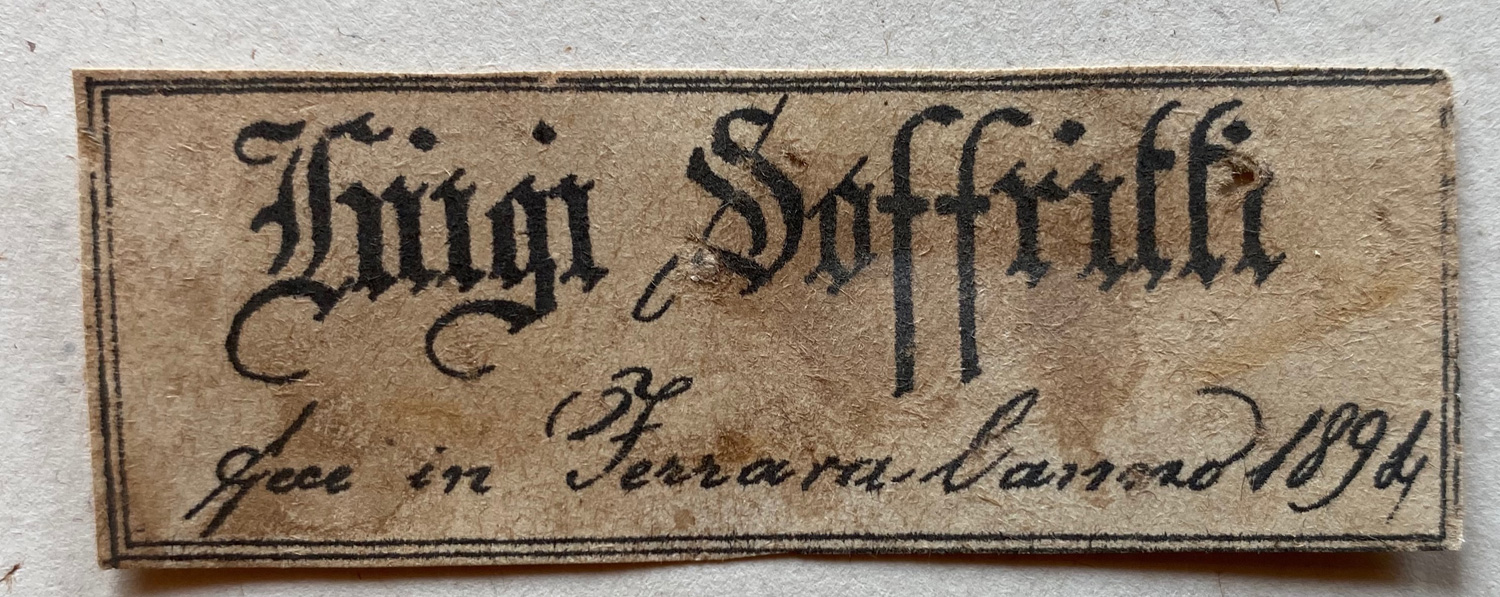 Luigi Soffritti
fece in Ferrara l'anno 1894